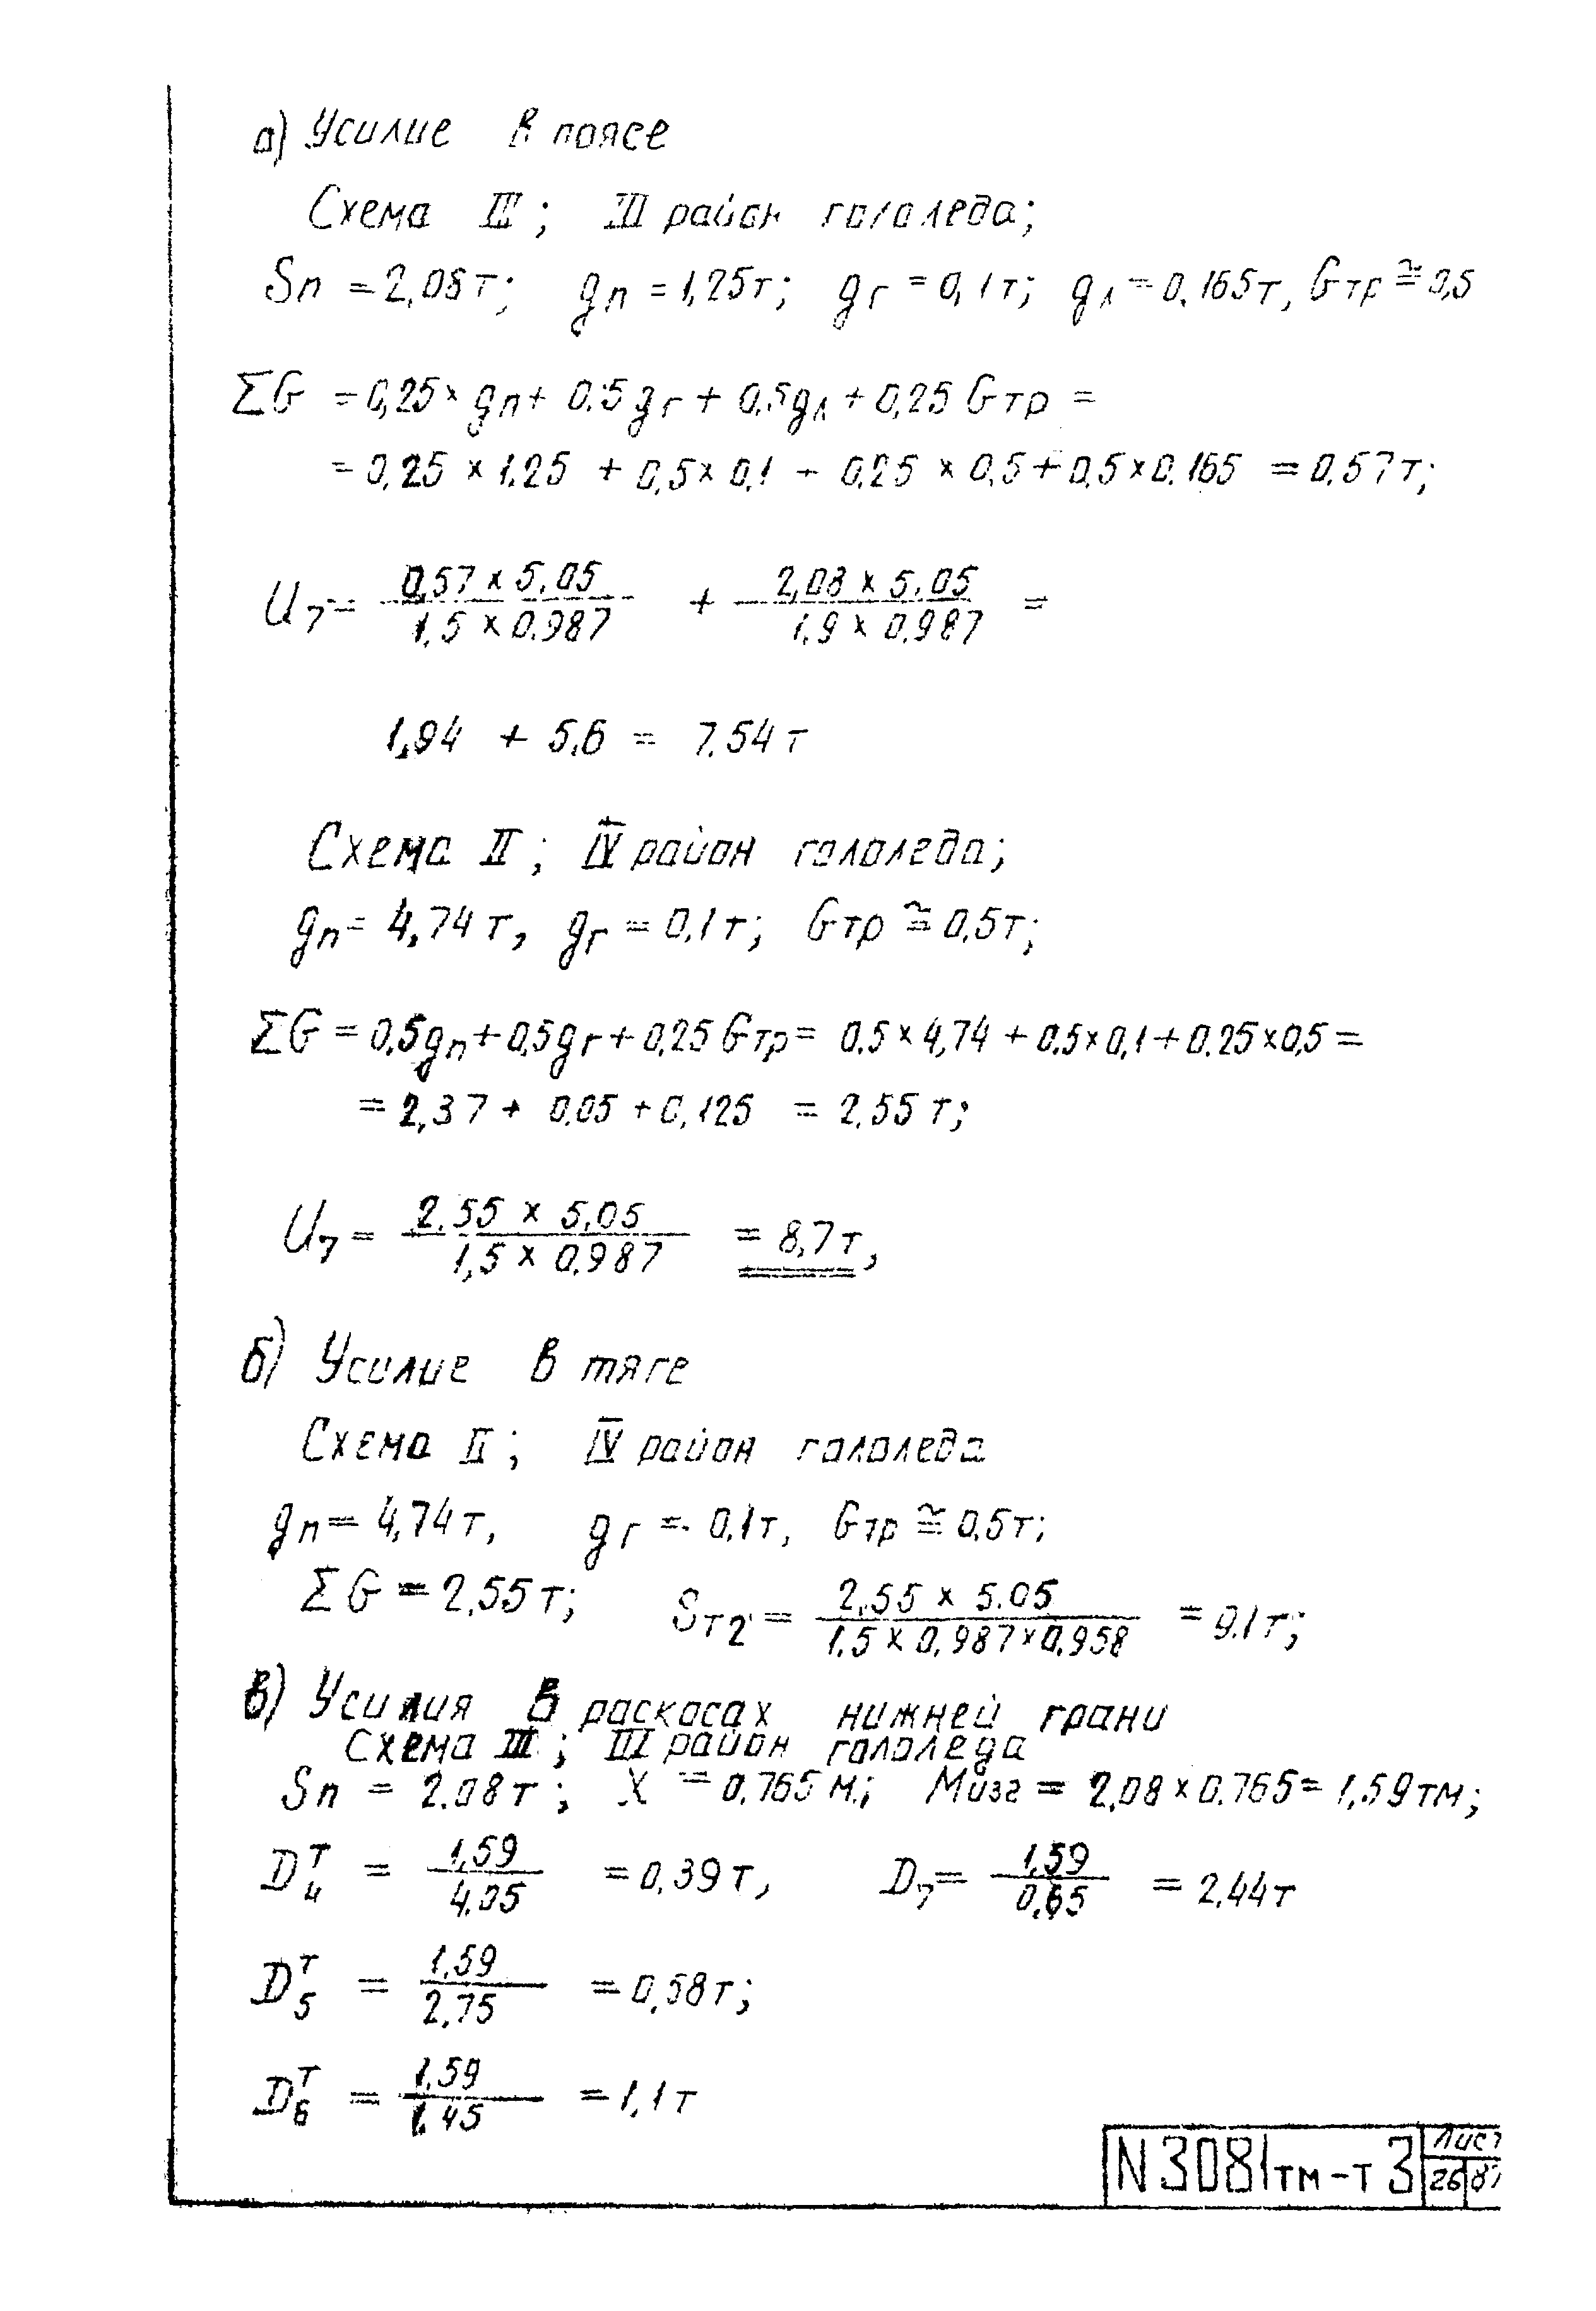 а) Усилие в поясе
Схема III; III район гололеда;
Sп = 2,08т; gп = 1,25т; gг = 0,1т; gл = 0,165т, Gтр ≅ 0,5
ΣG = 0,25 × gп + 0,5gг + 0,5gл + 0,25 Gтр =
= 0,25 × 1.25 + 0,5 × 0,1 + 0,25 × 0,5 + 0,5 × 0.165 = 0,57т;
U7 = 0,57 × 5,05 / 1,5 × 0.987 + 2,08 × 5.05 / 1.9 × 0.987 =
1,94 + 5,6 = 7.54т
Схема II; IV район гололеда;
gп = 4,74т, gг = 0,1т; Gтр ≅ 0,5т;
ΣG = 0,5gп + 0,5gг + 0,25 Gтр = 0.5 × 4,74 + 0.5 × 0,1 + 0.25 × 0,5 =
= 2,37 + 0.05 + 0,125 = 2,55т;
U7 = 2,55 × 5,05 / 1,5 × 0,987 = 8,7т,
б) Усилие в тяге
Схема II; IV район гололеда
gп = 4,74т, gг = 0,1т, Gтр ≅ 0,5т;
ΣG = 2,55т; Sт2 = 2,55 × 5.05 / 1.5 × 0,987 × 0,958 = 9.1т;
в) Усилия в раскосах нижней грани
Схема III; III район гололеда
Sп = 2.08т; X = 0,765м; Мизг = 2,08 × 0.765 = 1,59тм;
D4Т = 1,59 / 4,05 = 0,39т, D7 = 1,59 / 0,65 = 2.44т
D5Т = 1.59 / 2,75 = 0,58т;
D6Т = 1,59 / 1,45 = 1,1т
N3081тм-т3 Лист
26 87